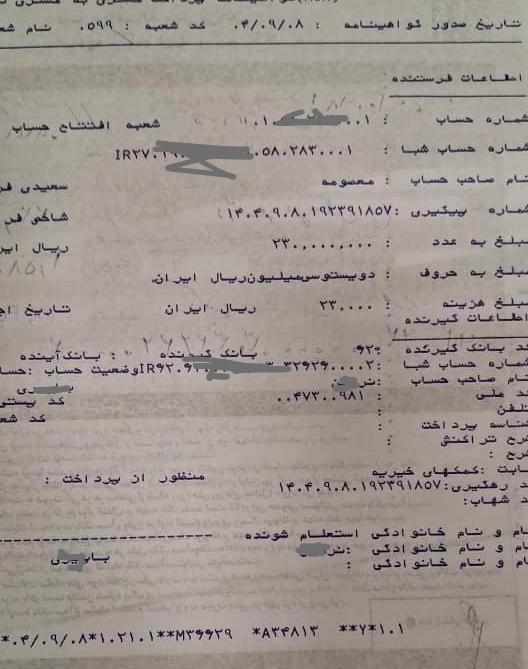 تاریخ صدور گواهینامه : ۰۴/۰۹/۰۸ کد شعبه : ۰۵۹۹ نام شع
اطلاعات فرستنده
شماره حساب : شعبه افتتاح حساب
شماره حساب شبا : IR۳۷۰۱۹ ۰۵۸۰۲۸۳۰۰۰۱
نام صاحب حساب : معصومه سعیدی فر
شماره پیگیری :۱۴۰۴۰۹۰۸۰۱۹۲۳۹۱۸۵۷ شاکی فر
مبلغ به عدد : ۲۳۰،۰۰۰،۰۰۰ ریال ایر
مبلغ به حروف : دویستوسیمیلیونریال ایران
مبلغ هزینه : ۲۳،۰۰۰ ریال ایران تاریخ اج
اطلاعات گیرنده
کد بانک گیرنده : ۰۶۲ بانک گیرنده : بانکآینده
شماره حساب شبا : IR۶۲۰۶۲ ۳۲۶۲۶۰۰۰۰۲ وضعیت حساب :حسا
نام صاحب حساب :
کد ملی : ۰۰۴۷۳۰۰۹۸۱ کد پستی
تلفن : کد شع
شناسه پرداخت :
شرح تراکنش :
شرح :
بابت :کمکهای خیریه منظور از پرداخت :
کد رهگیری:۱۴۰۴۰۹۰۸۰۱۹۲۳۹۱۸۵۷
کد شهاب:
نام و نام خانوادگی استعلام شونده
نام و نام خانوادگی :
نام و نام خانوادگی :
*۰۴/۰۹/۰۸*۱۰۲۱۰۱**M۳۶۶۲۹ *A۳۴۸۱۳ **۷*۱۰۱